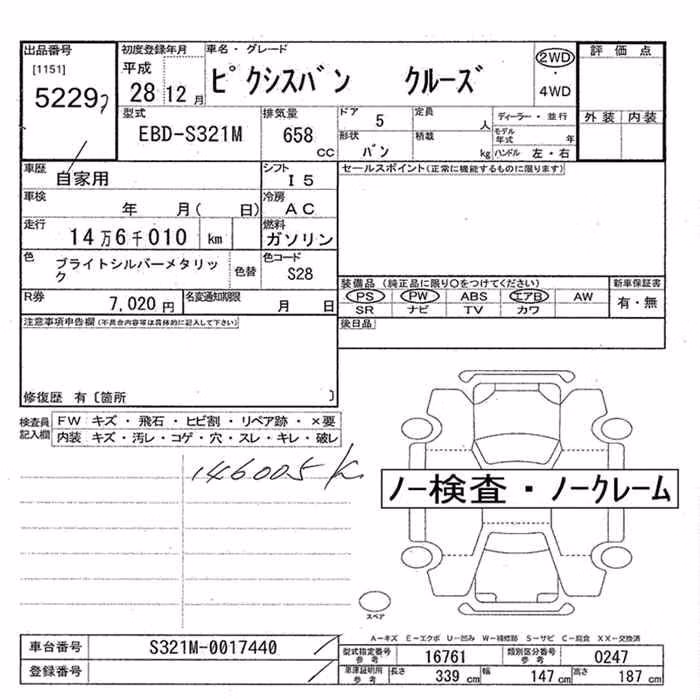 出品番号
[1151]
5229
初度登録年月
平成
28 12 月
車名・グレード
ピクシスバン クルーズ
2WD
・
4WD
評価点
外装 内装
型式
EBD-S321M
排気量
658
cc
ドア
5
定員
人
ディーラー・並行
モデル年式
年
形状
バン
積載
kg
ハンドル 左・右
車歴
自家用
シフト
I5
セールスポイント(正常に機能するものに限ります)
車検
年 月( 日)
冷房
AC
走行
14万6千010 km
燃料
ガソリン
色
ブライトシルバーメタリック
色替
色コード
S28
装備品(純正品に限り○をつけてください)
PS PW ABS エアB AW
SR ナビ TV カワ
新車保証書
有・無
R券
7,020 円
名変通知期限
月 日
後日品
注意事項申告欄(不具合内容等は具体的に記入して下さい)
修復歴 有〔箇所 〕
検査員記入欄
FW キズ・飛石・ヒビ割・リペア跡・×要
内装 キズ・汚レ・コゲ・穴・スレ・キレ・破レ
146005K
ノー検査・ノークレーム
スペア
A-キズ E-エクボ U-凹み W-補修跡 S-サビ C-腐食 XX-交換済
車台番号
S321M-0017440
登録番号
型式指定番号
参考
16761
類別区分番号
参考
0247
車庫証明用
参考
長さ
339 cm
幅
147 cm
高さ
187 cm